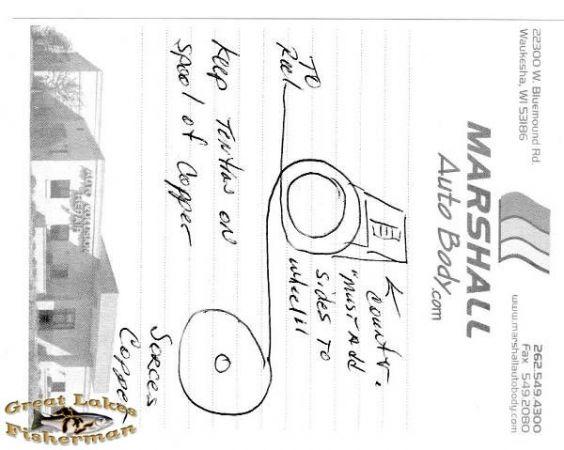 22300 W. Bluemound Rd.
Waukesha, WI 53186
MARSHALL
Auto Body.com
www.marshallautobody.com
262.549.4300
Fax 549.2080
To
Reel
Counter.
"Must Add
sides to
wheel"
Keep Tention on
spool of Copper
Sorces
Copper
Great Lakes
Fisherman